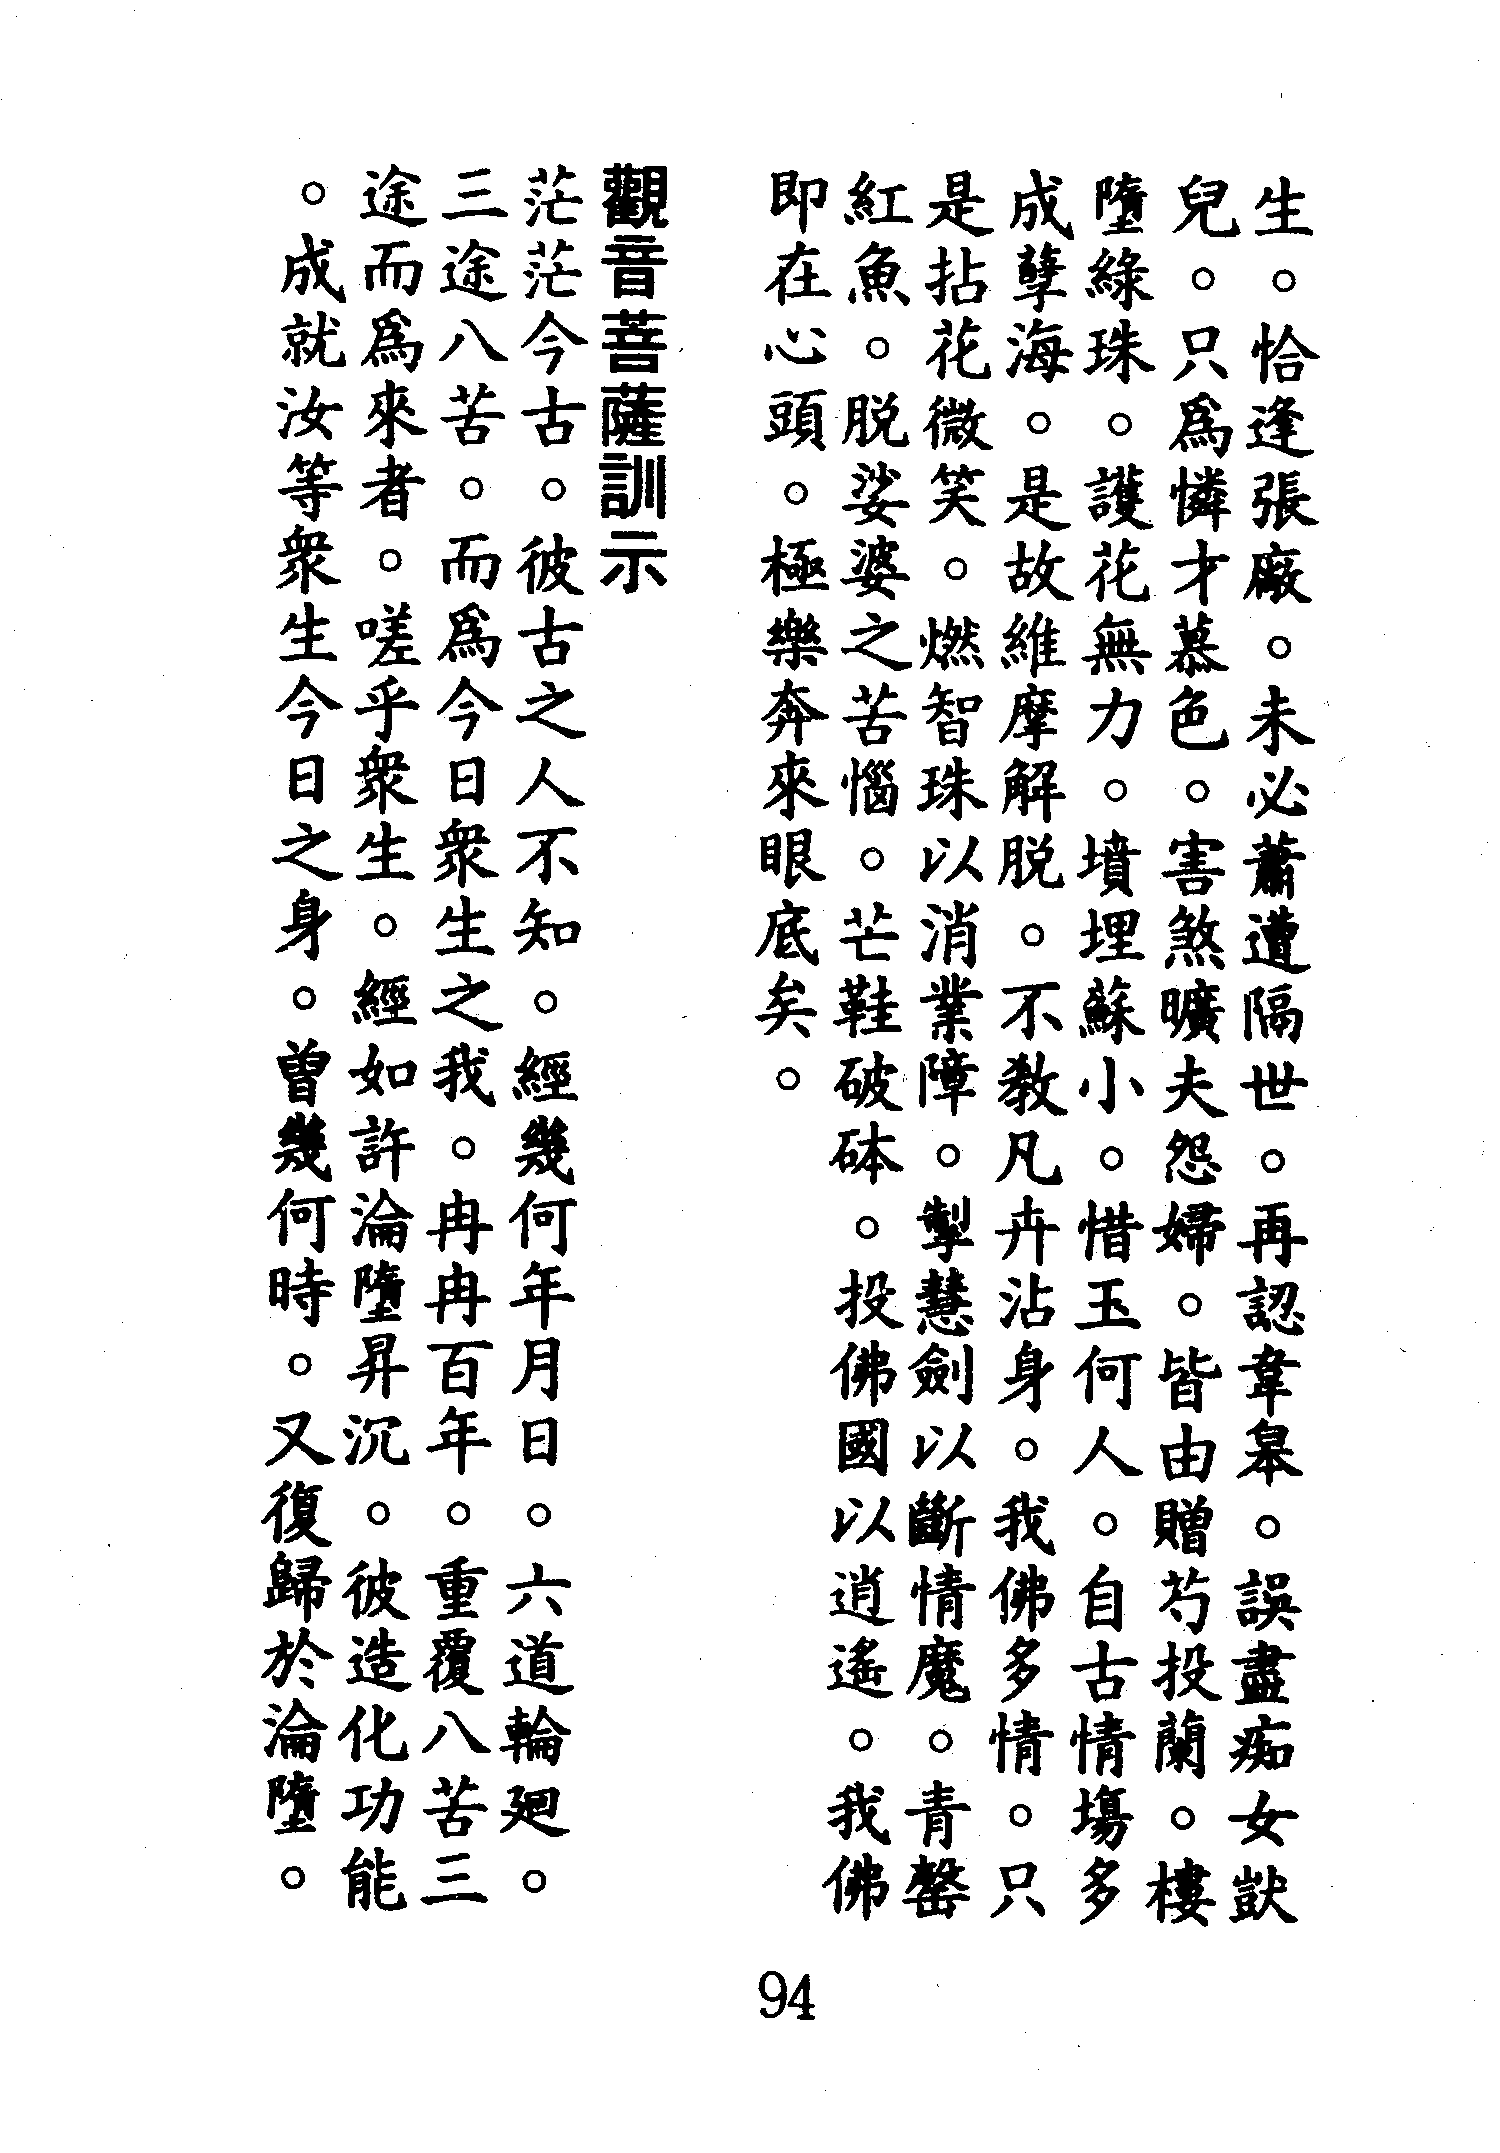 生。恰逢張廠。未必蕭遭隔世。再認韋皋。誤盡痴女獃
兒。只爲憐才慕色。害煞曠夫怨婦。皆由贈芍投蘭。樓
墮綠珠。護花無力。墳埋蘇小。惜玉何人。自古情塲多
成孽海。是故維摩解脱。不教凡卉沾身。我佛多情。只
是拈花微笑。燃智珠以消業障。掣慧劍以斷情魔。青罄
紅魚。脱娑婆之苦惱。芒鞋破砵。投佛國以逍遙。我佛
即在心頭。極樂奔來眼底矣。
觀音菩薩訓示
茫茫今古。彼古之人不知。經幾何年月日。六道輪廻。
三途八苦。而爲今日衆生之我。冉冉百年。重覆八苦三
途而爲來者。嗟乎衆生。經如許淪墮昇沉。彼造化功能
。成就汝等衆生今日之身。曾幾何時。又復歸於淪墮。
94